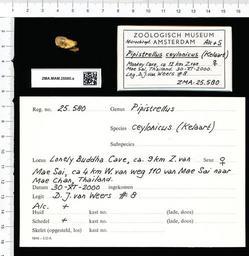 ZMA.MAM.25580.a
ZOÖLOGISCH MUSEUM
AMSTERDAM
Pipistrellus ceylonicus (Kelaart)
Monkey Cave, ca 12 km Z van ♀
Mae Sai, Thailand 30-XI-2000.
Leg. D.J. van Weers #8.
ZMA.25.580
Reg. no. 25.580 Genus Pipistrellus
Species ceylonicus (Kelaart)
Subspecies
Locus Lonely Buddha Cave, ca. 9km Z. van Sexe ♀
Mae Sai, ca 4 km W. van weg 110 van Mae Sai naar
Mae Chan, Thailand.
Datum 30-XI-2000 ingekomen
Legit D.J. van Weers #8
Alc. +
Huid kast no. (lade, doos)
Schedel + kast no. (lade, doos)
Skelet (opgesteld, los) kast no. (lade, doos)